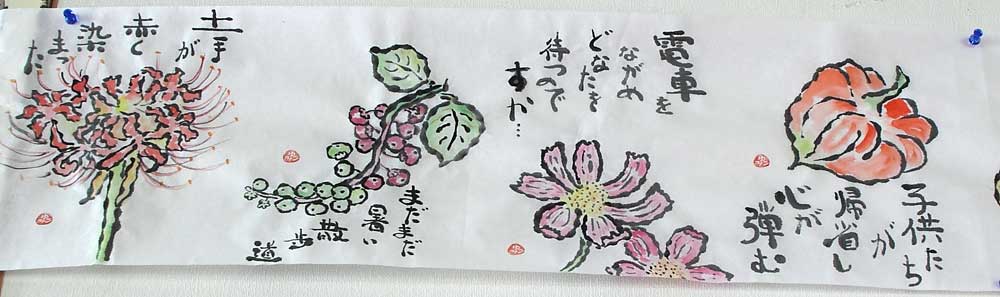 子供たち
が
帰省し
心が
弾む
電車を
ながめ
どなたを
待つので
すか…
まだまだ
暑い
散
歩
道
土手
が
赤く
染
まった